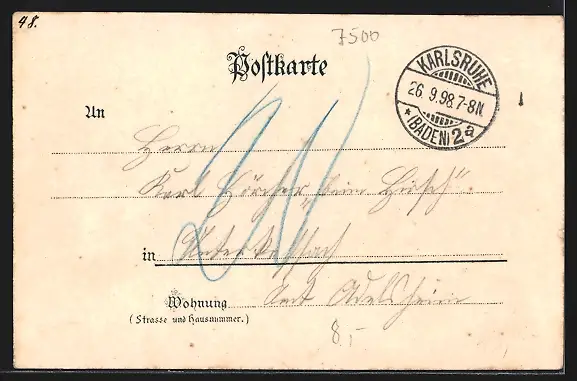 48.
7500
Postkarte
KARLSRUHE
26. 9.98.7-8N.
* (BADEN) 2a
An
Herrn
Karl Hörcher, "beim Hirsch".
in
Wohnung Amt Adelsheim
(Strasse und Hausnummer.)
8,-